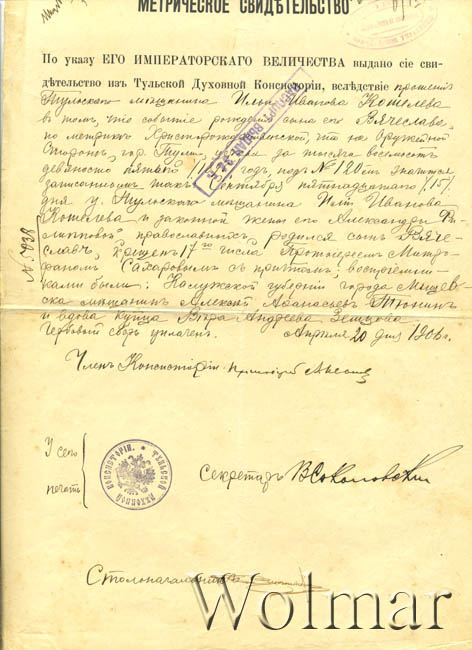 МЕТРИЧЕСКОЕ СВИДѢТЕЛЬСТВО
По указу ЕГО ИМПЕРАТОРСКАГО ВЕЛИЧЕСТВА выдано сіе сви-
дѣтельство изъ Тульской Духовной Консисторіи, вслѣдствіе прошенія
Тульскаго мѣщанина Ильи Иванова Кошелева
въ томъ, что событіе рожденія сына его Вячеслава
по метрикѣ Христорождественской, что на Оружейной
Сторонѣ, гор. Тулы, за тысяча восемьсотъ
девяносто пятый годъ, подъ № 120мъ значится
записаннымъ такъ: Сентября пятнадцатаго /15/
дня у Тульскаго мѣщанина Ильи Иванова
Кошелева и законной жены его Александры
православныхъ, родился сынъ Вяче-
славъ, крещенъ 17го числа Протоіереемъ Митро-
фаномъ Сахаровымъ съ причтомъ; воспріемни-
ками были: Калужской губерніи города Мещов-
ска мѣщанинъ Алексѣй Аѳанасьевъ Тюнинъ
и вдова купца Вѣра Андреева
Гербовый сборъ уплаченъ. Апрѣля 20 дня 1906 г.
№ 5938
Членъ Консисторіи
У сего
печать
ТУЛЬСКОЙ ДУХОВНОЙ КОНСИСТОРІИ
Секретарь В Соколовскій
Столоначальникъ
Wolmar